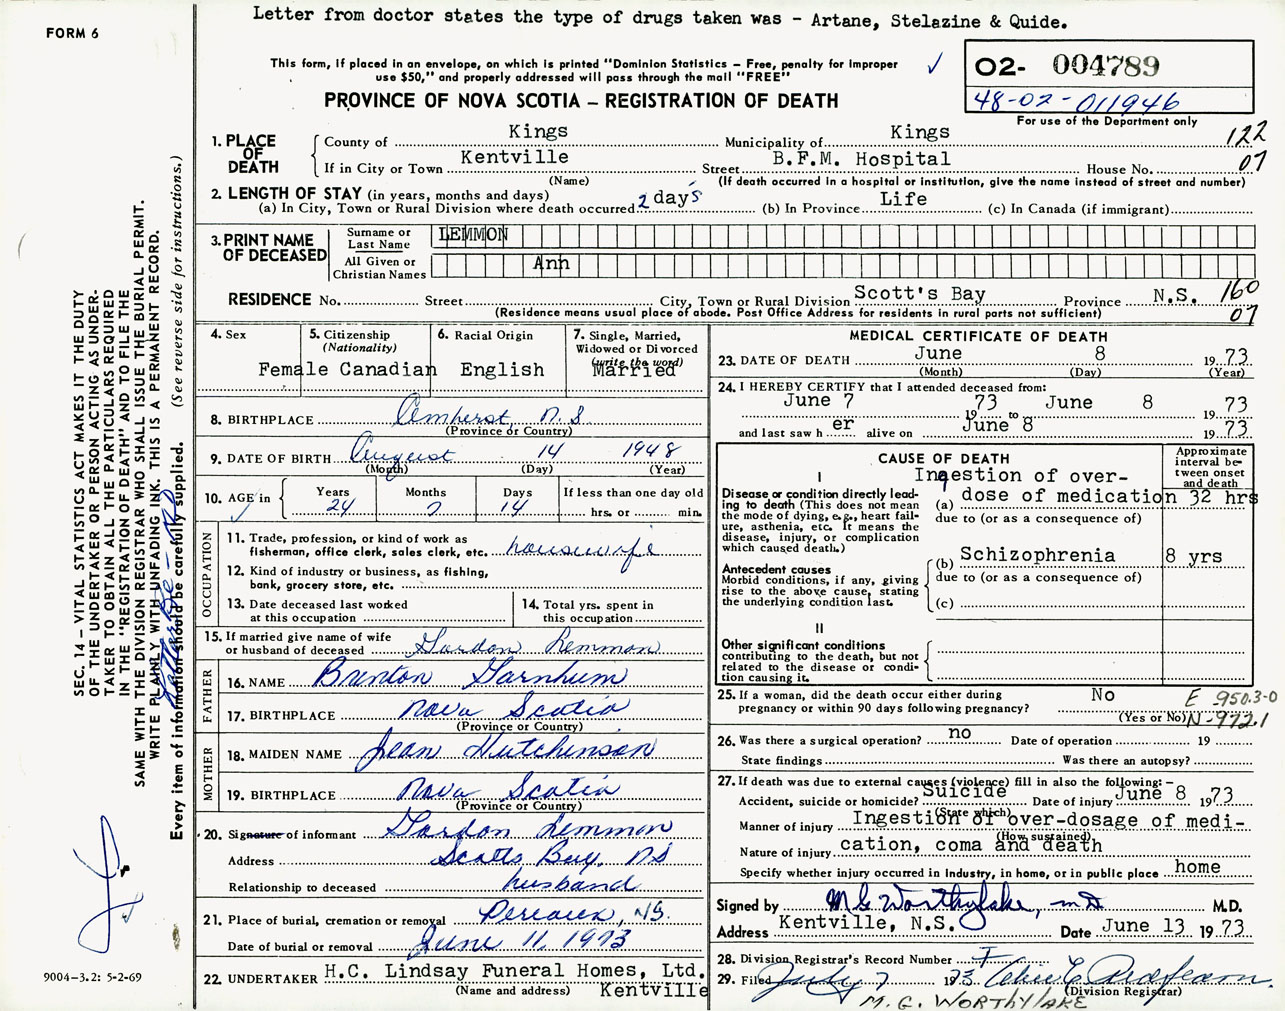 Letter from doctor states the type of drugs taken was - Artane, Stelazine & Quide.
FORM 6
This form, if placed in an envelope, on which is printed "Dominion Statistics – Free, penalty for improper
use $50," and properly addressed will pass through the mail "FREE"
PROVINCE OF NOVA SCOTIA – REGISTRATION OF DEATH
O2- 004789
48-02-011946
For use of the Department only
1. PLACE OF DEATH
County of Kings Municipality of Kings 122
If in City or Town Kentville Street B.F.M. Hospital House No. 07
(Name) (If death occurred in a hospital or institution, give the name instead of street and number)
2. LENGTH OF STAY (in years, months and days)
(a) In City, Town or Rural Division where death occurred 2 days (b) In Province Life (c) In Canada (if immigrant)
3. PRINT NAME OF DECEASED
Surname or Last Name LEMMON
All Given or Christian Names Ann
RESIDENCE No. Street City, Town or Rural Division Scott's Bay Province N.S. 160
(Residence means usual place of abode. Post Office Address for residents in rural parts not sufficient) 07
4. Sex Female
5. Citizenship (Nationality) Canadian
6. Racial Origin English
7. Single, Married, Widowed or Divorced (write the word) Married
8. BIRTHPLACE Amherst N.S
(Province or Country)
9. DATE OF BIRTH August 14 1948
(Month) (Day) (Year)
10. AGE in Years 24 Months Days 14 If less than one day old hrs. or min.
OCCUPATION
11. Trade, profession, or kind of work as
fisherman, office clerk, sales clerk, etc. housewife
12. Kind of industry or business, as fishing,
bank, grocery store, etc.
13. Date deceased last worked
at this occupation
14. Total yrs. spent in
this occupation
15. If married give name of wife
or husband of deceased Gordon Lemmon
FATHER
16. NAME Brenton Garnhum
17. BIRTHPLACE Nova Scotia
(Province or Country)
MOTHER
18. MAIDEN NAME Jean Hutchinson
19. BIRTHPLACE Nova Scotia
(Province or Country)
20. Signature of informant Gordon Lemmon
Address Scotts Bay, NS
Relationship to deceased husband
21. Place of burial, cremation or removal Pereaux, NS.
Date of burial or removal June 11, 1973
22. UNDERTAKER H.C. Lindsay Funeral Homes, Ltd.
(Name and address) Kentville
MEDICAL CERTIFICATE OF DEATH
23. DATE OF DEATH June 8 1973
(Month) (Day) (Year)
24. I HEREBY CERTIFY that I attended deceased from:
June 7 1973 to June 8 1973
and last saw her alive on June 8 1973
CAUSE OF DEATH
Approximate interval between onset and death
I
Disease or condition directly leading to death (This does not
mean the mode of dying, e.g., heart failure, asthenia, etc. It means the
disease, injury, or complication
which caused death.)
Ingestion of over-
(a) dose of medication 32 hrs
due to (or as a consequence of)
Antecedent causes
Morbid conditions, if any, giving
rise to the above cause, stating
the underlying condition last.
(b) Schizophrenia 8 yrs
due to (or as a consequence of)
(c)
II
Other significant conditions
contributing to the death, but not
related to the disease or condition causing it.
25. If a woman, did the death occur either during
pregnancy or within 90 days following pregnancy? No
(Yes or No)
E 950.3-0
N-972.1
26. Was there a surgical operation? no Date of operation 19
State findings Was there an autopsy?
27. If death was due to external causes (violence) fill in also the following: –
Accident, suicide or homicide? Suicide Date of injury June 8 1973
(State which)
Manner of injury Ingestion of over-dosage of medi-
(How sustained)
Nature of injury cation, coma and death
Specify whether injury occurred in industry, in home, or in public place home
Signed by M G Worthylake, M.D. M.D.
Address Kentville, N.S. Date June 13 1973
28. Division Registrar's Record Number
29. Filed July 7 1973
(Division Registrar)
M. G. WORTHYLAKE
SEC. 14 – VITAL STATISTICS ACT MAKES IT THE DUTY
OF THE UNDERTAKER OR PERSON ACTING AS UNDER-
TAKER TO OBTAIN ALL THE PARTICULARS REQUIRED
IN THE "REGISTRATION OF DEATH" AND TO FILE THE
SAME WITH THE DIVISION REGISTRAR WHO SHALL ISSUE THE BURIAL PERMIT.
WRITE PLAINLY WITH UNFADING INK. THIS IS A PERMANENT RECORD.
Every item of information should be carefully supplied. (See reverse side for instructions.)
9004–3.2: 5-2-69